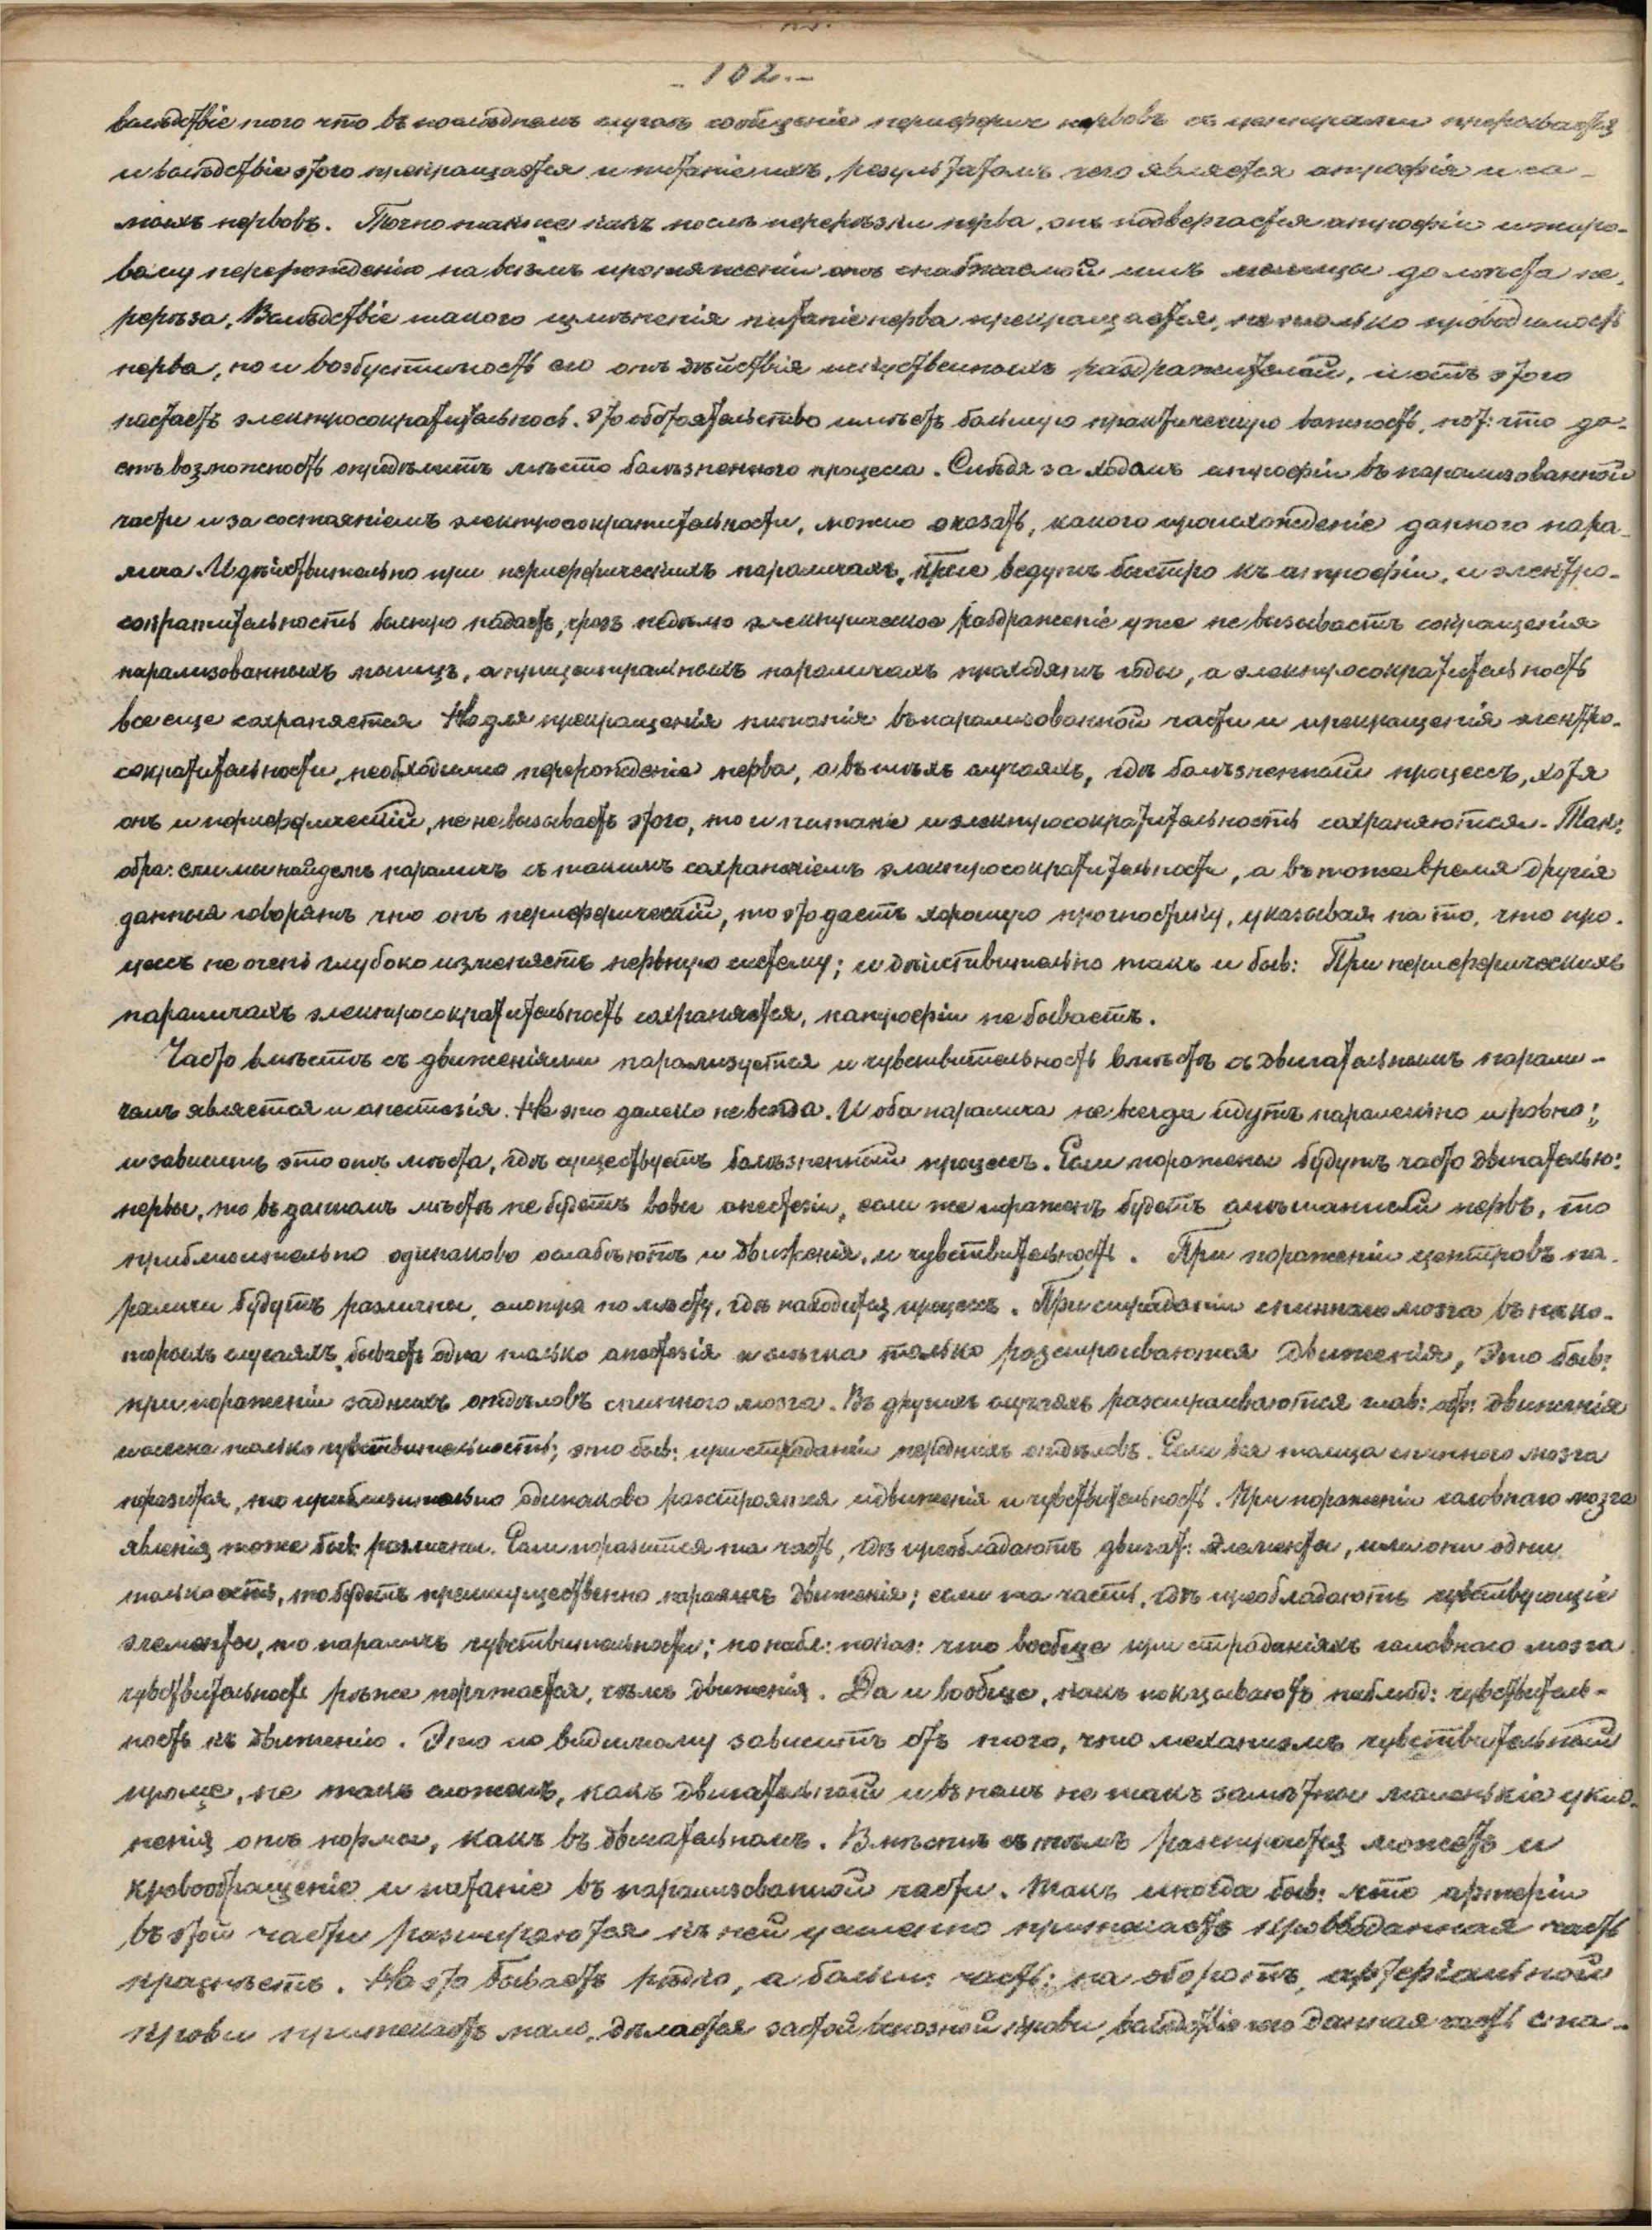 - 102. -
вслѣдствіе того что въ послѣднемъ случаѣ сообщеніе периферич нервовъ съ центрами прерывается
и вслѣдствіе этого прекращается и питаніе ихъ, результатомъ чего является атрофія и са-
михъ нервовъ. Точно также какъ послѣ перерѣзки нерва, онъ подвергается атрофіи и жиро-
вому перерожденію на всемъ протяженіи отъ снабжаемой имъ мышцы до мѣста пе-
рерѣза. Вслѣдствіе такого измѣненія питаніе нерва прекращается, не только проводимость
нерва, но и возбустимость его отъ дѣйствія искуственныхъ раздражителей, и отъ этого
падаетъ электросократительнось. Это обстоятельство имѣетъ большую практическую важность, пот: что да-
етъ возможность опредѣлить мѣсто болѣзненного процеса. Слѣдя за ходомъ атрофіи въ парализованной
части и за состояніемъ электросократительности, можно сказать, какого происхожденіе данного пара-
лича. И дѣйствительно при периферическихъ параличахъ, прое ведутъ быстро къ атрофіи, и электро-
сократительность быстро падаетъ, чрезъ недѣлю электрическое раздраженіе уже не вызываетъ сокращенія
парализованныхъ мышцъ, а при центральныхъ параличахъ проходятъ годы, а электросократительность
все еще сохраняется Но для прекращенія питанія въ парализованной части и прекращенія электро-
сократительности, необходимо перерожденіе нерва, а въ тѣхъ случаяхъ, гдѣ болѣзненный процессъ, хотя
онъ и периферическій, но не вызываетъ этого, то и питаніе и электросократительность сохраняются. Так:
обра: если мы найдемъ параличъ съ такимъ сохраненіемъ электросократительности, а въ тоже время другія
данныя говорятъ что онъ периферическій, то это даетъ хорошую прогностику, указывая на то, что про-
цесъ не очень глубоко измѣняетъ нервную систему; и дѣйствительно такъ и быв: При периферическихъ
параличахъ электросократительность сохраняется, и атрофіи не бываетъ.
Часто вмѣстѣ съ движеніями парализуется и чувствительность вмѣстѣ съ двигательнымъ парали-
чемъ является и анестезія. Но это далеко не всегда. И оба паралича не всегда идутъ паралельно и ровно;
и зависитъ это отъ мѣста, гдѣ существуетъ болѣзненный процесъ. Если поражены будутъ часто двигательно:
нервы, то въ данномъ мѣстѣ не будетъ вовсе анестезіи, если же пораженъ будетъ смѣшанный нервъ, то
приблизительно одинаково ослабѣютъ и движенія, и чувствительность. При пораженіи центровъ па-
раличи будутъ различны, смотря по мѣсту, гдѣ находится процесъ. При страданіи спинного мозга въ нѣко-
торыхъ случаяхъ бываетъ одна только анестезія и слегка только разстроиваются движенія, Это быв:
при пораженіи заднихъ отдѣловъ спинного мозга. Въ другихъ случаяхъ разстраиваются глав: обр: движенія
и слегка только чувствительность; это быв: при страданіи переднихъ отдѣловъ. Если вся толща спинного мозга
поразится, то приблизительно одинаково разстроятся и движенія и чувствительность. При пораженіи головного мозга
явленія тоже быв: различны. Если поразится та часть, гдѣ преобладаютъ двигат: элементы, или они одни
только есть, то будетъ преимущественно параличъ движенія; если та часть, гдѣ преобладаютъ чувствующіе
элементы, то параличъ чувствительности; но набл: показ: что вообще при страданіяхъ головного мозга
чувствительность рѣже поражается, чѣмъ движенія. Да и вообще, какъ показываютъ наблюд: чувствитель-
ность къ движенію. Это по видимому зависитъ отъ того, что механизмъ чувствительный
проще, не такъ сложенъ, какъ двигательный и въ немъ не такъ замѣтны маленькіе укло-
ненія отъ нормы, какъ въ двигательномъ. Вмѣстѣ съ тѣмъ разстроится можетъ и
кровообращеніе и питаніе въ парализованной части. Такъ иногда быв: что артеріи
въ этой части разширяются къ ней усиленно притекаетъ кровь и данная часть
краснѣетъ. Но это бываетъ рѣдко, а больш: часть: на оборотъ, артеріальной
крови притекаетъ мало, дѣлается застой венозной крови, вслѣдствіе чего данная часть ста-